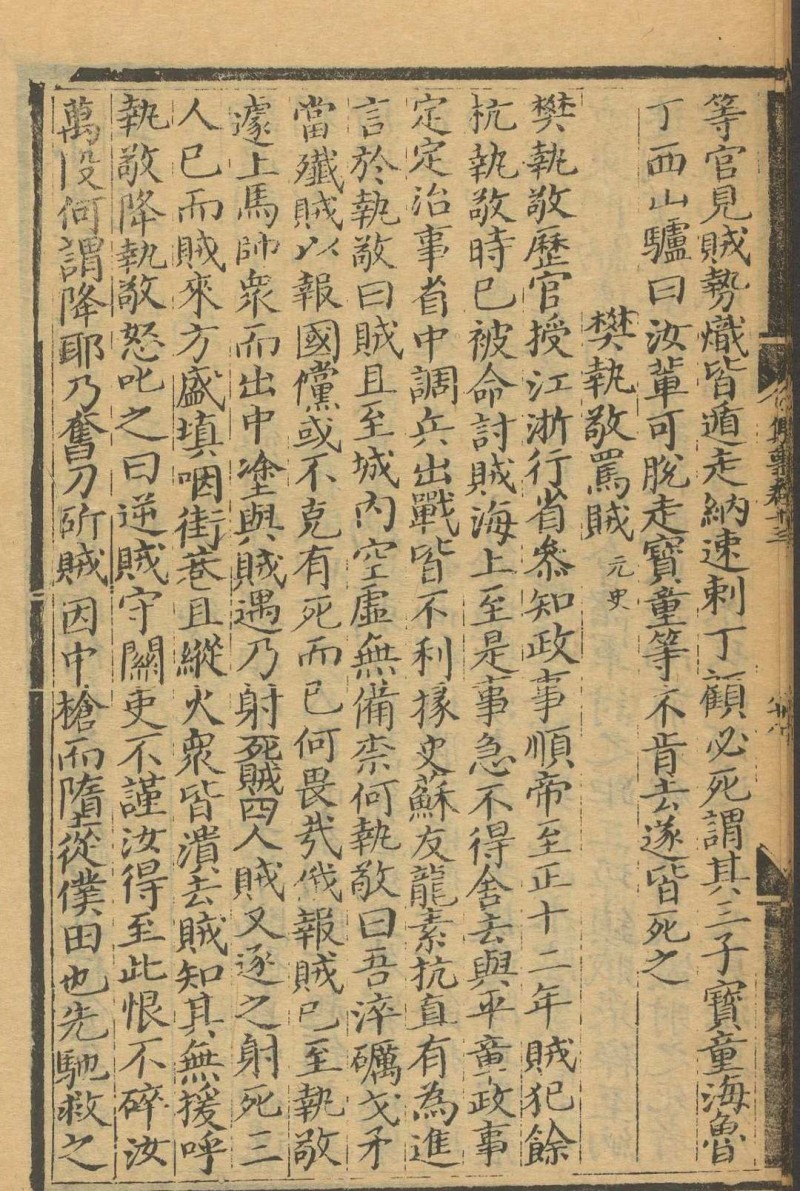 等官見賊勢熾皆遁走納速剌丁顧必死謂其三子寶童海魯
丁西山驢曰汝軰可脫走寶童等不肯去遂皆死之
樊執敬罵賊 元史
樊執敬歷官授江浙行省叅知政事順帝至正十二年賊犯餘
杭執敬時已被命討賊海上至是事急不得舍去與平章政事
定定治事省中調兵出戰皆不利掾史蘇友龍素抗直有為進
言於執敬曰賊且至城內空虛無備柰何執敬曰吾淬礪戈矛
當殱賊以報國儻或不克有死而已何畏㦲俄報賊已至執敬
遽上馬帥衆而出中塗與賊遇乃射死賊四人賊又逐之射死三
人已而賊來方盛填咽街巷且縱火衆皆潰去賊知其無援呼
執敬降執敬怒叱之曰逆賊守關吏不謹汝得至此恨不碎汝
萬段何謂降耶乃奮刀斫賊因中槍而墮從僕田也先馳救之